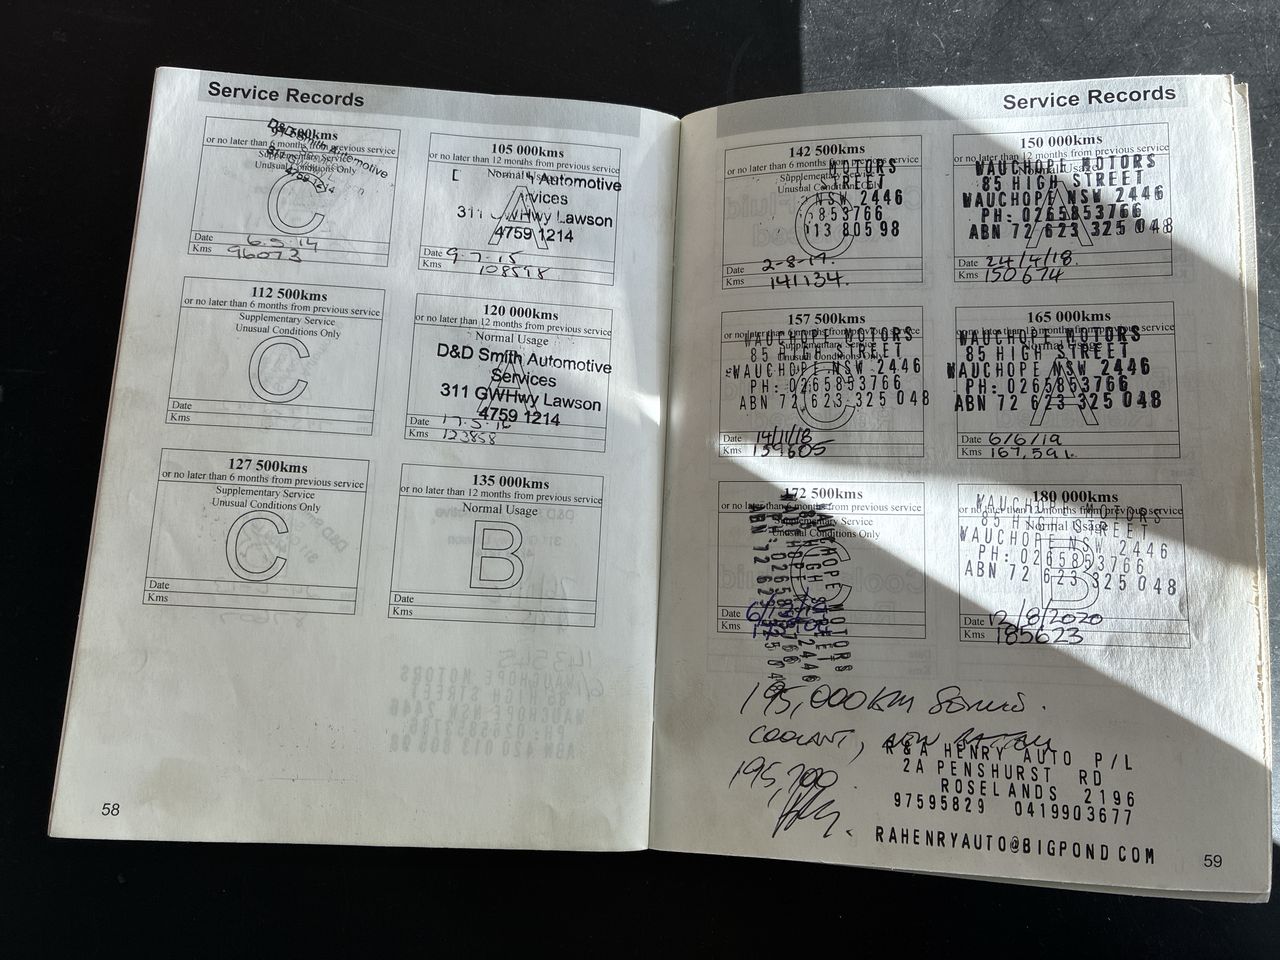 Service Records
500kms
or no later than 6 months from previous service
Supplementary Service
Unusual Conditions Only
D&D Smith Automotive
4759 1214
C
Date 6.5.14
Kms 96073
105 000kms
or no later than 12 months from previous service
Normal Usage
Automotive
rvices
311 GWHwy Lawson
4759 1214
A
Date 9.7.15
Kms 108598
112 500kms
or no later than 6 months from previous service
Supplementary Service
Unusual Conditions Only
C
Date
Kms
120 000kms
or no later than 12 months from previous service
Normal Usage
D&D Smith Automotive
Services
311 GWHwy Lawson
4759 1214
A
Date 17.5.16
Kms 123858
127 500kms
or no later than 6 months from previous service
Supplementary Service
Unusual Conditions Only
C
Date
Kms
135 000kms
or no later than 12 months from previous service
Normal Usage
B
Date
Kms
58
Service Records
142 500kms
or no later than 6 months from previous service
Supplementary Service
Unusual Conditions Only
MOTORS
STREET
NSW 2446
853766
013 805 98
C
Date 2-8-17.
Kms 141134.
150 000kms
or no later than 12 months from previous service
WAUCHOPE MOTORS
85 HIGH STREET
WAUCHOPE NSW 2446
PH: 0265853766
ABN 72 623 325 048
A
Date 24/4/18.
Kms 150674
157 500kms
or no later than 6 months from previous service
Supplementary Service
Unusual Conditions Only
WAUCHOPE MOTORS
85 HIGH STREET
WAUCHOPE NSW 2446
PH: 0265853766
ABN 72 623 325 048
C
Date 14/11/18
Kms 159605
165 000kms
or no later than 12 months from previous service
Normal Usage
WAUCHOPE MOTORS
85 HIGH STREET
WAUCHOPE NSW 2446
PH: 0265853766
ABN 72 623 325 048
A
Date 6/6/19
Kms 167,591.
172 500kms
or no later than 6 months from previous service
Supplementary Service
Unusual Conditions Only
WAUCHOPE MOTORS
85 HIGH STREET
WAUCHOPE NSW 2446
PH: 0265853766
ABN 72 623 325 04
C
Date
Kms
180 000kms
or no later than 12 months from previous service
Normal Usage
WAUCHOPE MOTORS
85 HIGH STREET
WAUCHOPE NSW 2446
PH: 0265853766
ABN 72 623 325 048
B
Date 12/8/2020
Kms 185623
195,000KM
COOLANT, NEW
195,700
R&A HENRY AUTO P/L
2A PENSHURST RD
ROSELANDS 2196
97595829 0419903677
RAHENRYAUTO@BIGPOND COM
59